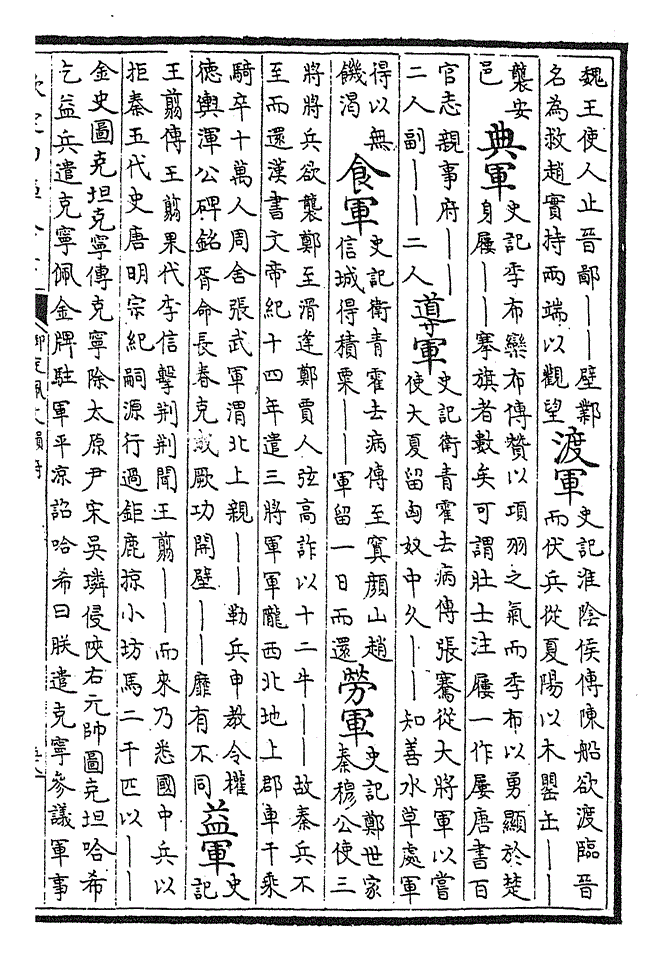 魏王使人止晉鄙——壁鄴
名為救趙實持兩端以觀望
渡軍
史記淮陰侯傳陳船欲渡臨晉
而伏兵從夏陽以木罌缶——
襲安
邑
典軍
史記季布欒布傳贊以項羽之氣而季布以勇顯於楚
身屨——搴旗者數矣可謂壯士注屨一作屢唐書百
官志親事府——
二人副——二人
導軍
史記衛青霍去病傳張騫從大將軍以嘗
使大夏留匈奴中久——知善水草處軍
得以無
饑渴
食軍
史記衛青霍去病傳至窴顏山趙
信城得積粟——軍留一日而還
勞軍
史記鄭世家
秦穆公使三
將將兵欲襲鄭至滑逢鄭賈人弦高詐以十二牛——故秦兵不
至而還漢書文帝紀十四年遣三將軍軍隴西北地上郡車千乘
騎卒十萬人周舍張武軍渭北上親——勒兵申教令權
德輿渾公碑銘胥命長春克厥功開壁——靡有不同
益軍
史
記
王翦傳王翦果代李信擊荆荆聞王翦——而來乃悉國中兵以
拒秦五代史唐明宗紀嗣源行過鉅鹿掠小坊馬二千匹以——
金史圖克坦克寧傳克寧除太原尹宋吳璘侵陝右元帥圖克坦哈希
乞益兵遣克寧佩金牌駐軍平涼詔哈希曰朕遣克寧參議軍事